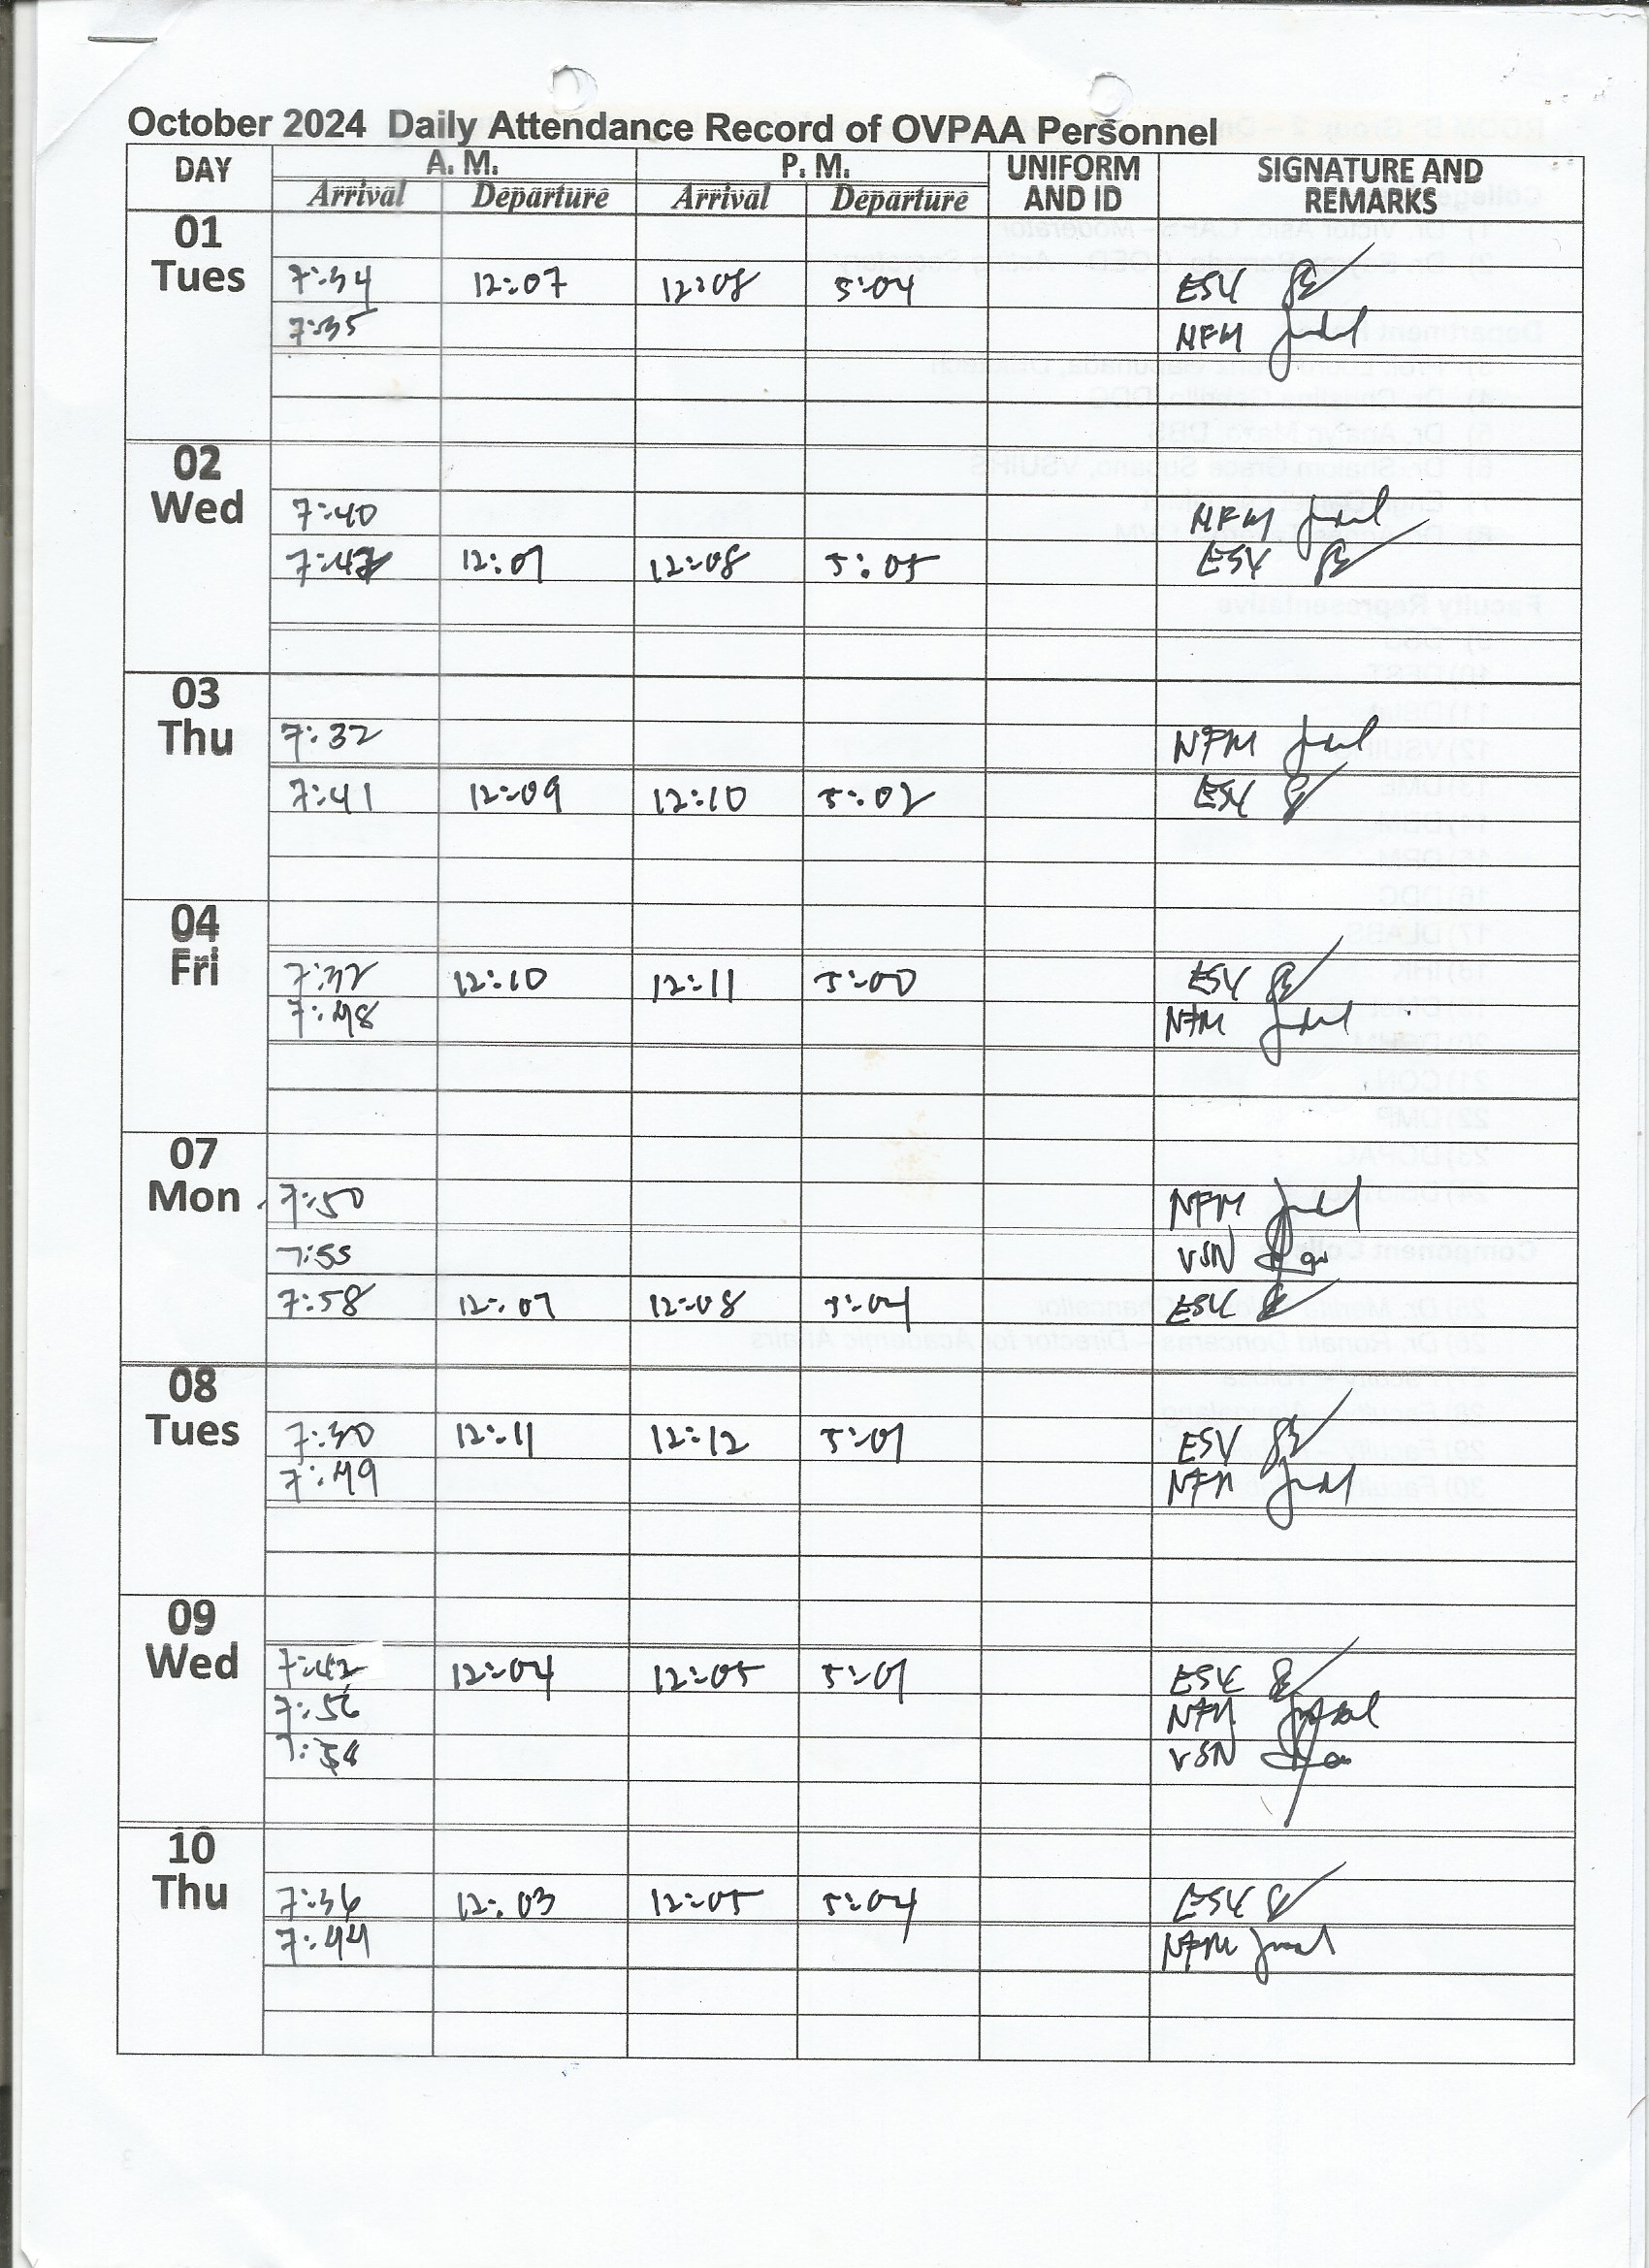 October 2024 Daily Attendance Record of OVPAA Personnel
DAY A. M. P. M. UNIFORM AND ID SIGNATURE AND REMARKS
Arrival Departure Arrival Departure
01 Tues
7:34 12:07 12:08 5:04 ESK
7:35 NFM
02 Wed
7:40 NFM
12:07 12:08 5:05 ESK
03 Thu
7:32 NFM
7:41 12:09 12:10 5:02 ESK
04 Fri
7:32 12:10 12:11 5:00 ESK
7:48 NFM
07 Mon
7:50 NFM
7:55 VSN
7:58 12:07 12:08 5:04 ESK
08 Tues
7:30 12:11 12:12 5:01 ESK
7:49 NFM
09 Wed
7:42 12:04 12:05 5:01 ESK
7:56 NFM
VSN
10 Thu
7:36 12:03 12:05 5:04 ESK
7:44 NFM